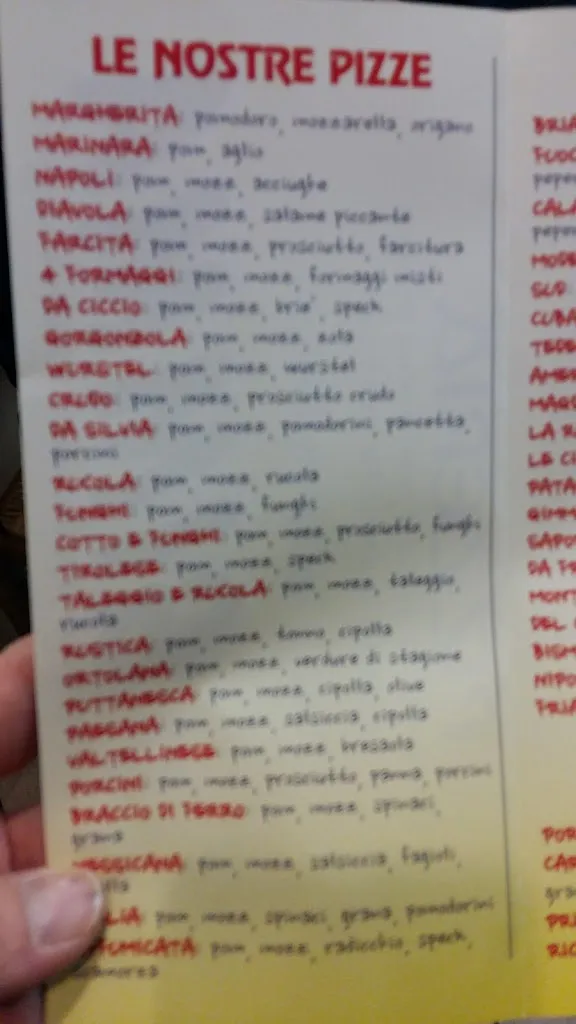 LE NOSTRE PIZZE
MARGHERITA: pomodoro, mozzarella, origano
MARINARA: pom, aglio
NAPOLI: pom, mozz, acciughe
DIAVOLA: pom, mozz, salame piccante
FARCITA: pom, mozz, prosciutto, farcitura
4 FORMAGGI: pom, mozz, formaggi misti
DA CICCIO: pom, mozz, brie', speck
GORGONZOLA: pom, mozz, zola
WURSTEL: pom, mozz, wurstel
CRUDO: pom, mozz, prosciutto crudo
DA SILVIA: pom, mozz, pomodorini, pancetta,
porcini
RUCOLA: pom, mozz, rucola
FUNGHI: pom, mozz, funghi
COTTO & FUNGHI: pom, mozz, prosciutto, funghi
TIROLESE: pom, mozz, speck
TALEGGIO & RUCOLA: pom, mozz, taleggio,
rucola
RUSTICA: pom, mozz, tonno, cipolla
ORTOLANA: pom, mozz, verdure di stagione
PUTTANESCA: pom, mozz, cipolla, olive
PAESANA: pom, mozz, salsiccia, cipolla
VALTELLINESE: pom, mozz, bresaola
PORCINI: pom, mozz, prosciutto, panna, porcini
BRACCIO DI FERRO: pom, mozz, spinaci,
grana
MESSICANA: pom, mozz, salsiccia, fagioli,
LIA: pom, mozz, spinaci, grana, pomodorini
UMICATA: pom, mozz, radicchio, speck,
BRIA
FUOC
pepe
CALA
pepe
MODE
SUP
CUBA
TEDE
AMER
MARG
LA R
LE CI
PATA
GIMM
SAPO
DA FR
MONT
DEL
BISM
NIPO
FRIA
POR
CAR
gra
PRI
RIC